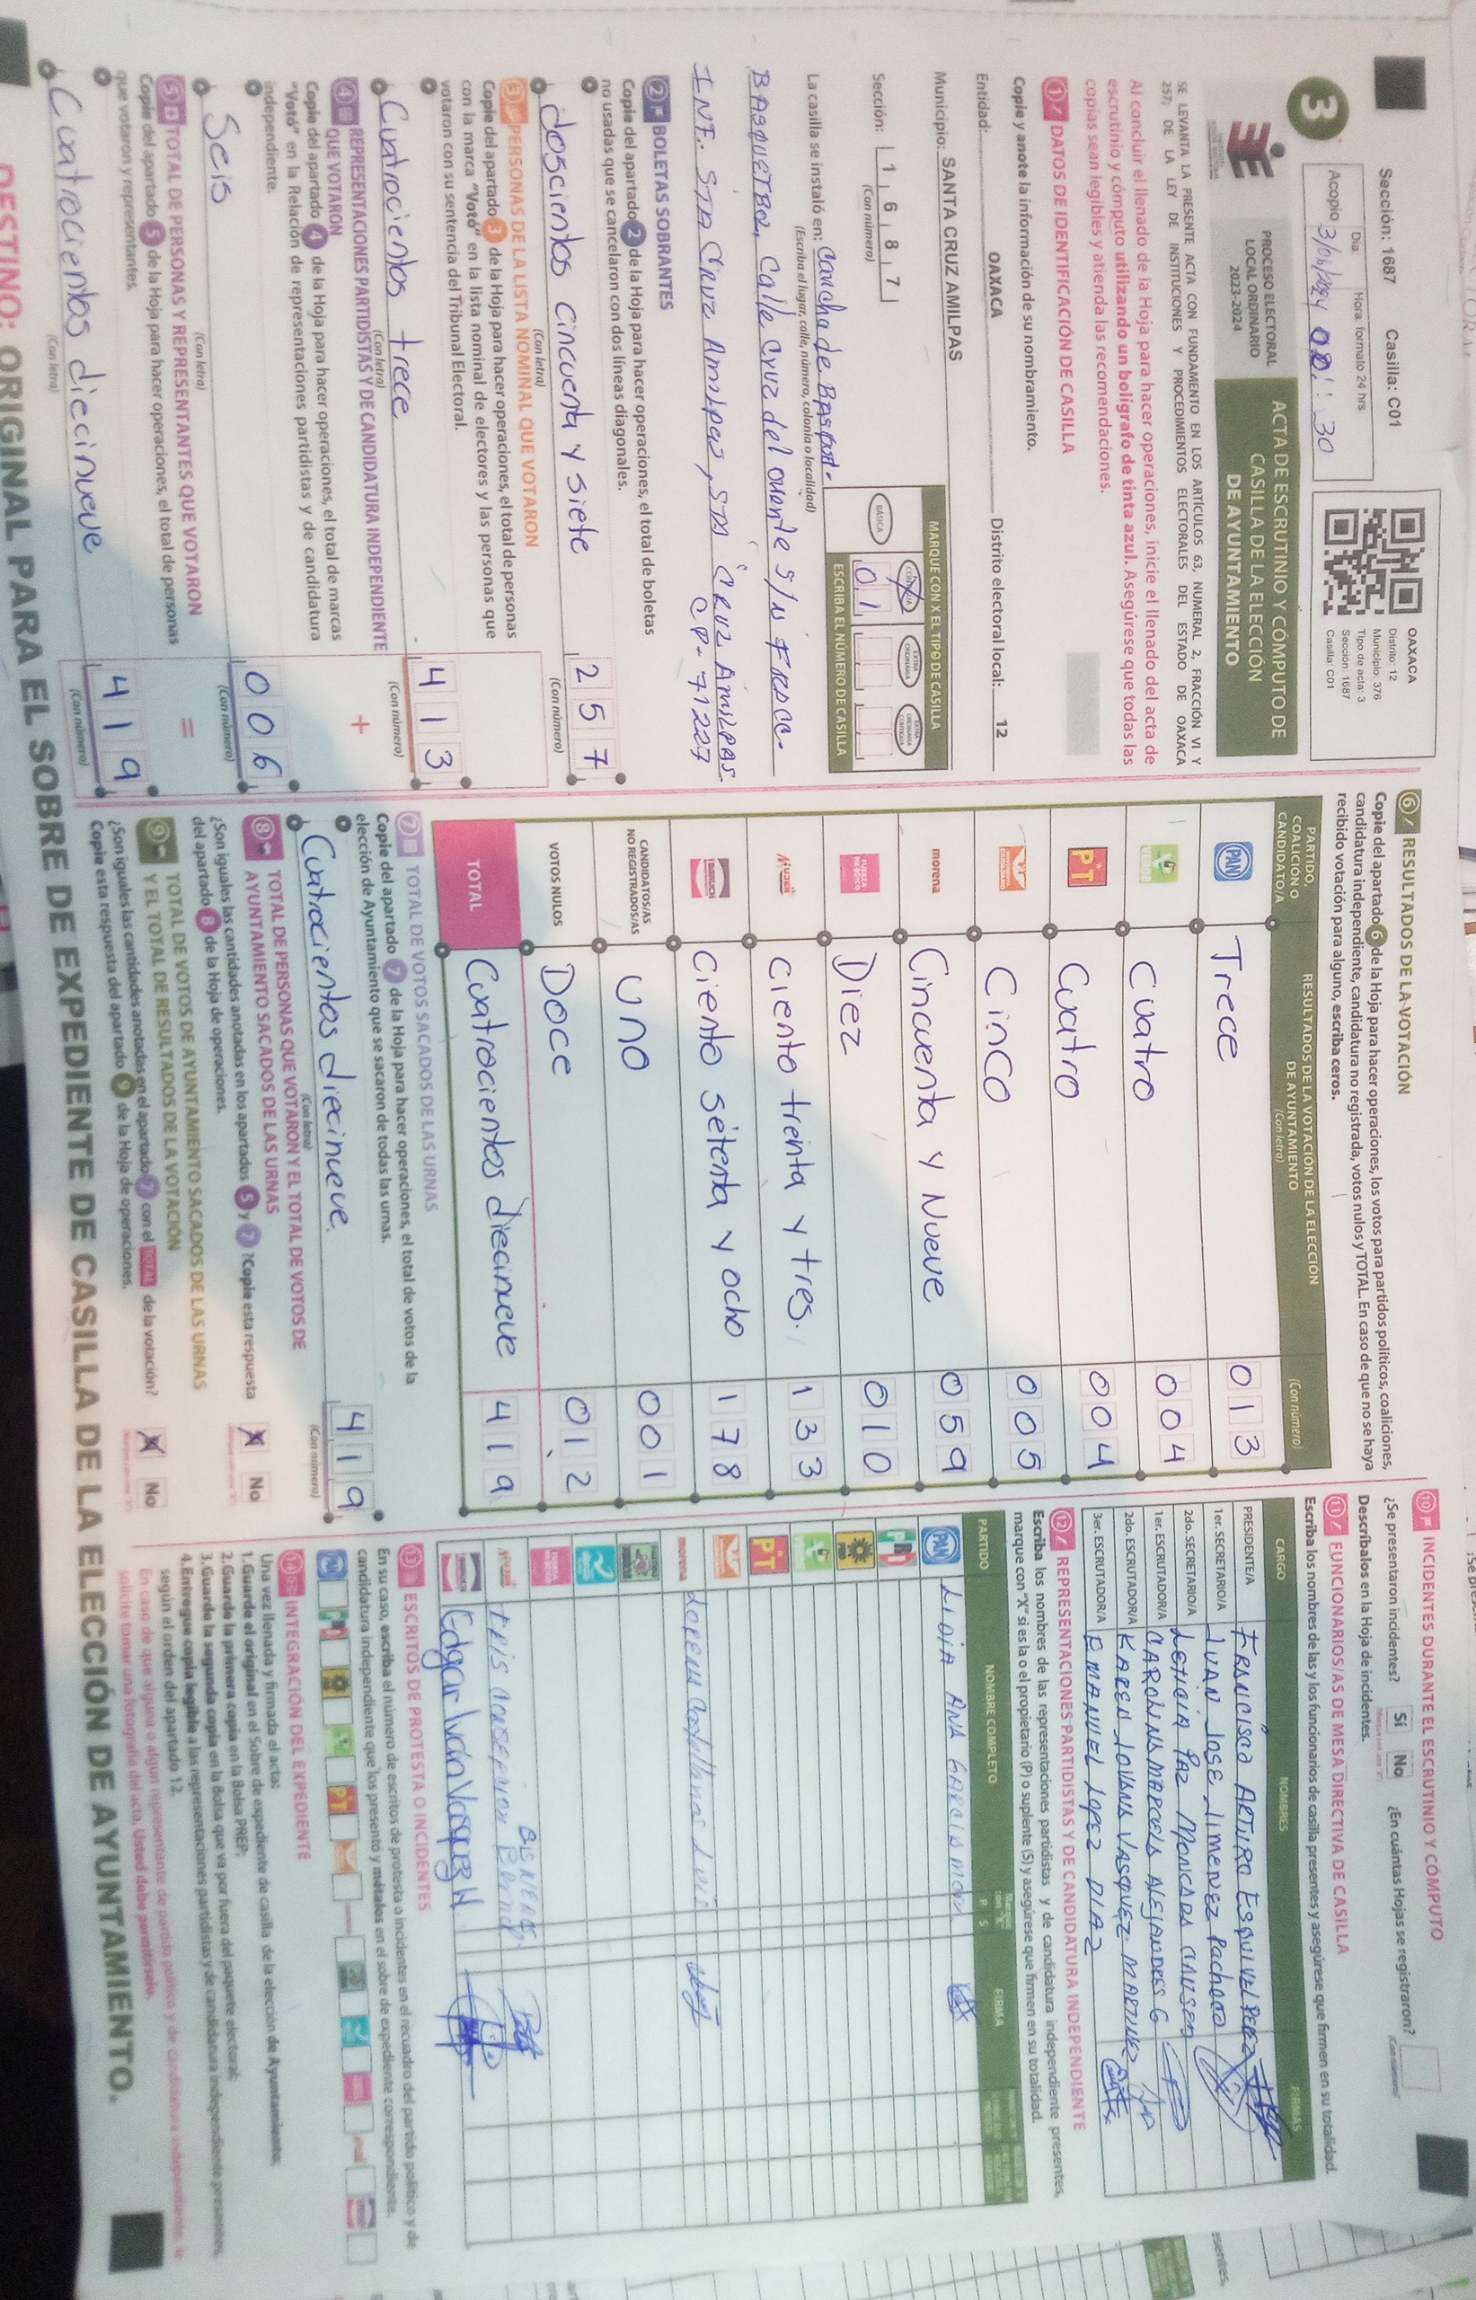 Sección: 1687 Casilla: C01
Día: Hora: formato 24 hrs.
Acopio 3/06/2024 00:30
3
OAXACA
Distrito: 12
Municipio: 376
Tipo de acta: 3
Sección: 1687
Casilla: C01
PROCESO ELECTORAL
LOCAL ORDINARIO
2023-2024
ACTA DE ESCRUTINIO Y CÓMPUTO DE
CASILLA DE LA ELECCIÓN
DE AYUNTAMIENTO
SE LEVANTA LA PRESENTE ACTA CON FUNDAMENTO EN LOS ARTÍCULOS 63, NUMERAL 2, FRACCIÓN VI Y
257; DE LA LEY DE INSTITUCIONES Y PROCEDIMIENTOS ELECTORALES DEL ESTADO DE OAXACA
Al concluir el llenado de la Hoja para hacer operaciones, inicie el llenado del acta de
escrutinio y cómputo utilizando un bolígrafo de tinta azul. Asegúrese que todas las
copias sean legibles y atienda las recomendaciones.
1 DATOS DE IDENTIFICACIÓN DE CASILLA
Copie y anote la información de su nombramiento.
Entidad: OAXACA Distrito electoral local: 12
Municipio: SANTA CRUZ AMILPAS
Sección: 1 6 8 7
(Con número)
MARQUE CON X EL TIPO DE CASILLA
BÁSICA
ESCRIBA EL NÚMERO DE CASILLA
0 1
La casilla se instaló en: Cancha de Basquet-
(Escriba el lugar, calle, número, colonia o localidad)
BASQUETBOL, Calle Cruz del oriente S/N FRACC.
INF. STA Cruz Amilpas, STA CRUZ AMILPAS.
CP. 71227
2 BOLETAS SOBRANTES
Copie del apartado 2 de la Hoja para hacer operaciones, el total de boletas
no usadas que se cancelaron con dos líneas diagonales.
doscientos cincuenta y siete 2 5 7
(Con letra) (Con número)
3 PERSONAS DE LA LISTA NOMINAL QUE VOTARON
Copie del apartado 3 de la Hoja para hacer operaciones, el total de personas
con la marca "Votó" en la lista nominal de electores y las personas que
votaron con su sentencia del Tribunal Electoral.
Cuatrocientos trece 4 1 3
(Con letra) (Con número)
4 REPRESENTACIONES PARTIDISTAS Y DE CANDIDATURA INDEPENDIENTE
QUE VOTARON
+
Copie del apartado 4 de la Hoja para hacer operaciones, el total de marcas
"Votó" en la Relación de representaciones partidistas y de candidatura
independiente.
Seis 0 0 6
(Con letra) (Con número)
5 TOTAL DE PERSONAS Y REPRESENTANTES QUE VOTARON
=
Copie del apartado 5 de la Hoja para hacer operaciones, el total de personas
que votaron y representantes.
Cuatrocientos diecinueve 4 1 9
(Con letra) (Con número)
6 RESULTADOS DE LA VOTACIÓN
Copie del apartado 6 de la Hoja para hacer operaciones, los votos para partidos políticos, coaliciones,
candidatura independiente, candidatura no registrada, votos nulos y TOTAL. En caso de que no se haya
recibido votación para alguno, escriba ceros.
PARTIDO,
COALICIÓN O
CANDIDATO/A
RESULTADOS DE LA VOTACIÓN DE LA ELECCIÓN
DE AYUNTAMIENTO
(Con letra)
(Con número)
PAN Trece 0 1 3
VERDE Cuatro 0 0 4
PT Cuatro 0 0 4
Cinco 0 0 5
morena Cincuenta y Nueve 0 5 9
FUERZA MÉXICO Diez 0 1 0
Ciento treinta y tres. 1 3 3
Ciento setenta y ocho 1 7 8
CANDIDATOS/AS
NO REGISTRADOS/AS
Uno 0 0 1
VOTOS NULOS Doce 0 1 2
TOTAL Cuatrocientos diecinueve 4 1 9
7 TOTAL DE VOTOS SACADOS DE LAS URNAS
Copie del apartado 7 de la Hoja para hacer operaciones, el total de votos de la
elección de Ayuntamiento que se sacaron de todas las urnas.
Cuatrocientos diecinueve. 4 1 9
(Con letra) (Con número)
8 TOTAL DE PERSONAS QUE VOTARON Y EL TOTAL DE VOTOS DE
AYUNTAMIENTO SACADOS DE LAS URNAS
¿Son iguales las cantidades anotadas en los apartados 5 y 7? Copie esta respuesta
del apartado 8 de la Hoja de operaciones.
No
9 TOTAL DE VOTOS DE AYUNTAMIENTO SACADOS DE LAS URNAS
Y EL TOTAL DE RESULTADOS DE LA VOTACIÓN
¿Son iguales las cantidades anotadas en el apartado 7 con el TOTAL de la votación?
Copie esta respuesta del apartado 9 de la Hoja de operaciones.
No
10 INCIDENTES DURANTE EL ESCRUTINIO Y CÓMPUTO
¿Se presentaron incidentes? Sí No ¿En cuántas Hojas se registraron?
Descríbalos en la Hoja de incidentes.
11 FUNCIONARIOS/AS DE MESA DIRECTIVA DE CASILLA
Escriba los nombres de las y los funcionarios de casilla presentes y asegúrese que firmen en su totalidad.
CARGO NOMBRES FIRMAS
PRESIDENTE/A FRANCISCO ARTURO ESQUIVEL PEREZ
1er. SECRETARIO/A JUAN JOSE JIMENEZ Pacheco
2do. SECRETARIO/A LETICIA PAZ MONCADA
1er. ESCRUTADOR/A CAROLINA MARCELA ALEJANDRES G
2do. ESCRUTADOR/A KAREN VASQUEZ MARTINEZ
3er. ESCRUTADOR/A EMMANUEL LOPEZ DIAZ
12 REPRESENTACIONES PARTIDISTAS Y DE CANDIDATURA INDEPENDIENTE
Escriba los nombres de las representaciones partidistas y de candidatura independiente presentes,
marque con "X" si es la o el propietario (P) o suplente (S) y asegúrese que firmen en su totalidad.
PARTIDO NOMBRE COMPLETO P S FIRMA
PAN LIGIA ANA GARCIA
PRI
PRD
PT
morena Lorena Castellanos Luis
Iris Concepcion
Edgar Iván Vasquez H
13 ESCRITOS DE PROTESTA O INCIDENTES
En su caso, escriba el número de escritos de protesta o incidentes en el recuadro del partido político y de
candidatura independiente que los presentó y métalos en el sobre de expediente correspondiente.
PT
14 INTEGRACIÓN DEL EXPEDIENTE
Una vez llenada y firmada el acta:
1. Guarde el original en el Sobre de expediente de casilla de la elección de Ayuntamiento;
2. Guarde la primera copia en la Bolsa PREP;
3. Guarde la segunda copia en la Bolsa que va por fuera del paquete electoral;
4. Entregue copia legible a las representaciones partidistas y de candidatura independiente presentes,
según el orden del apartado 12.
En caso de que alguna o algún representante de partido político y de candidatura independiente, le
solicite tomar una fotografía del acta, Usted debe permitírselo.
DESTINO: ORIGINAL PARA EL SOBRE DE EXPEDIENTE DE CASILLA DE LA ELECCIÓN DE AYUNTAMIENTO.